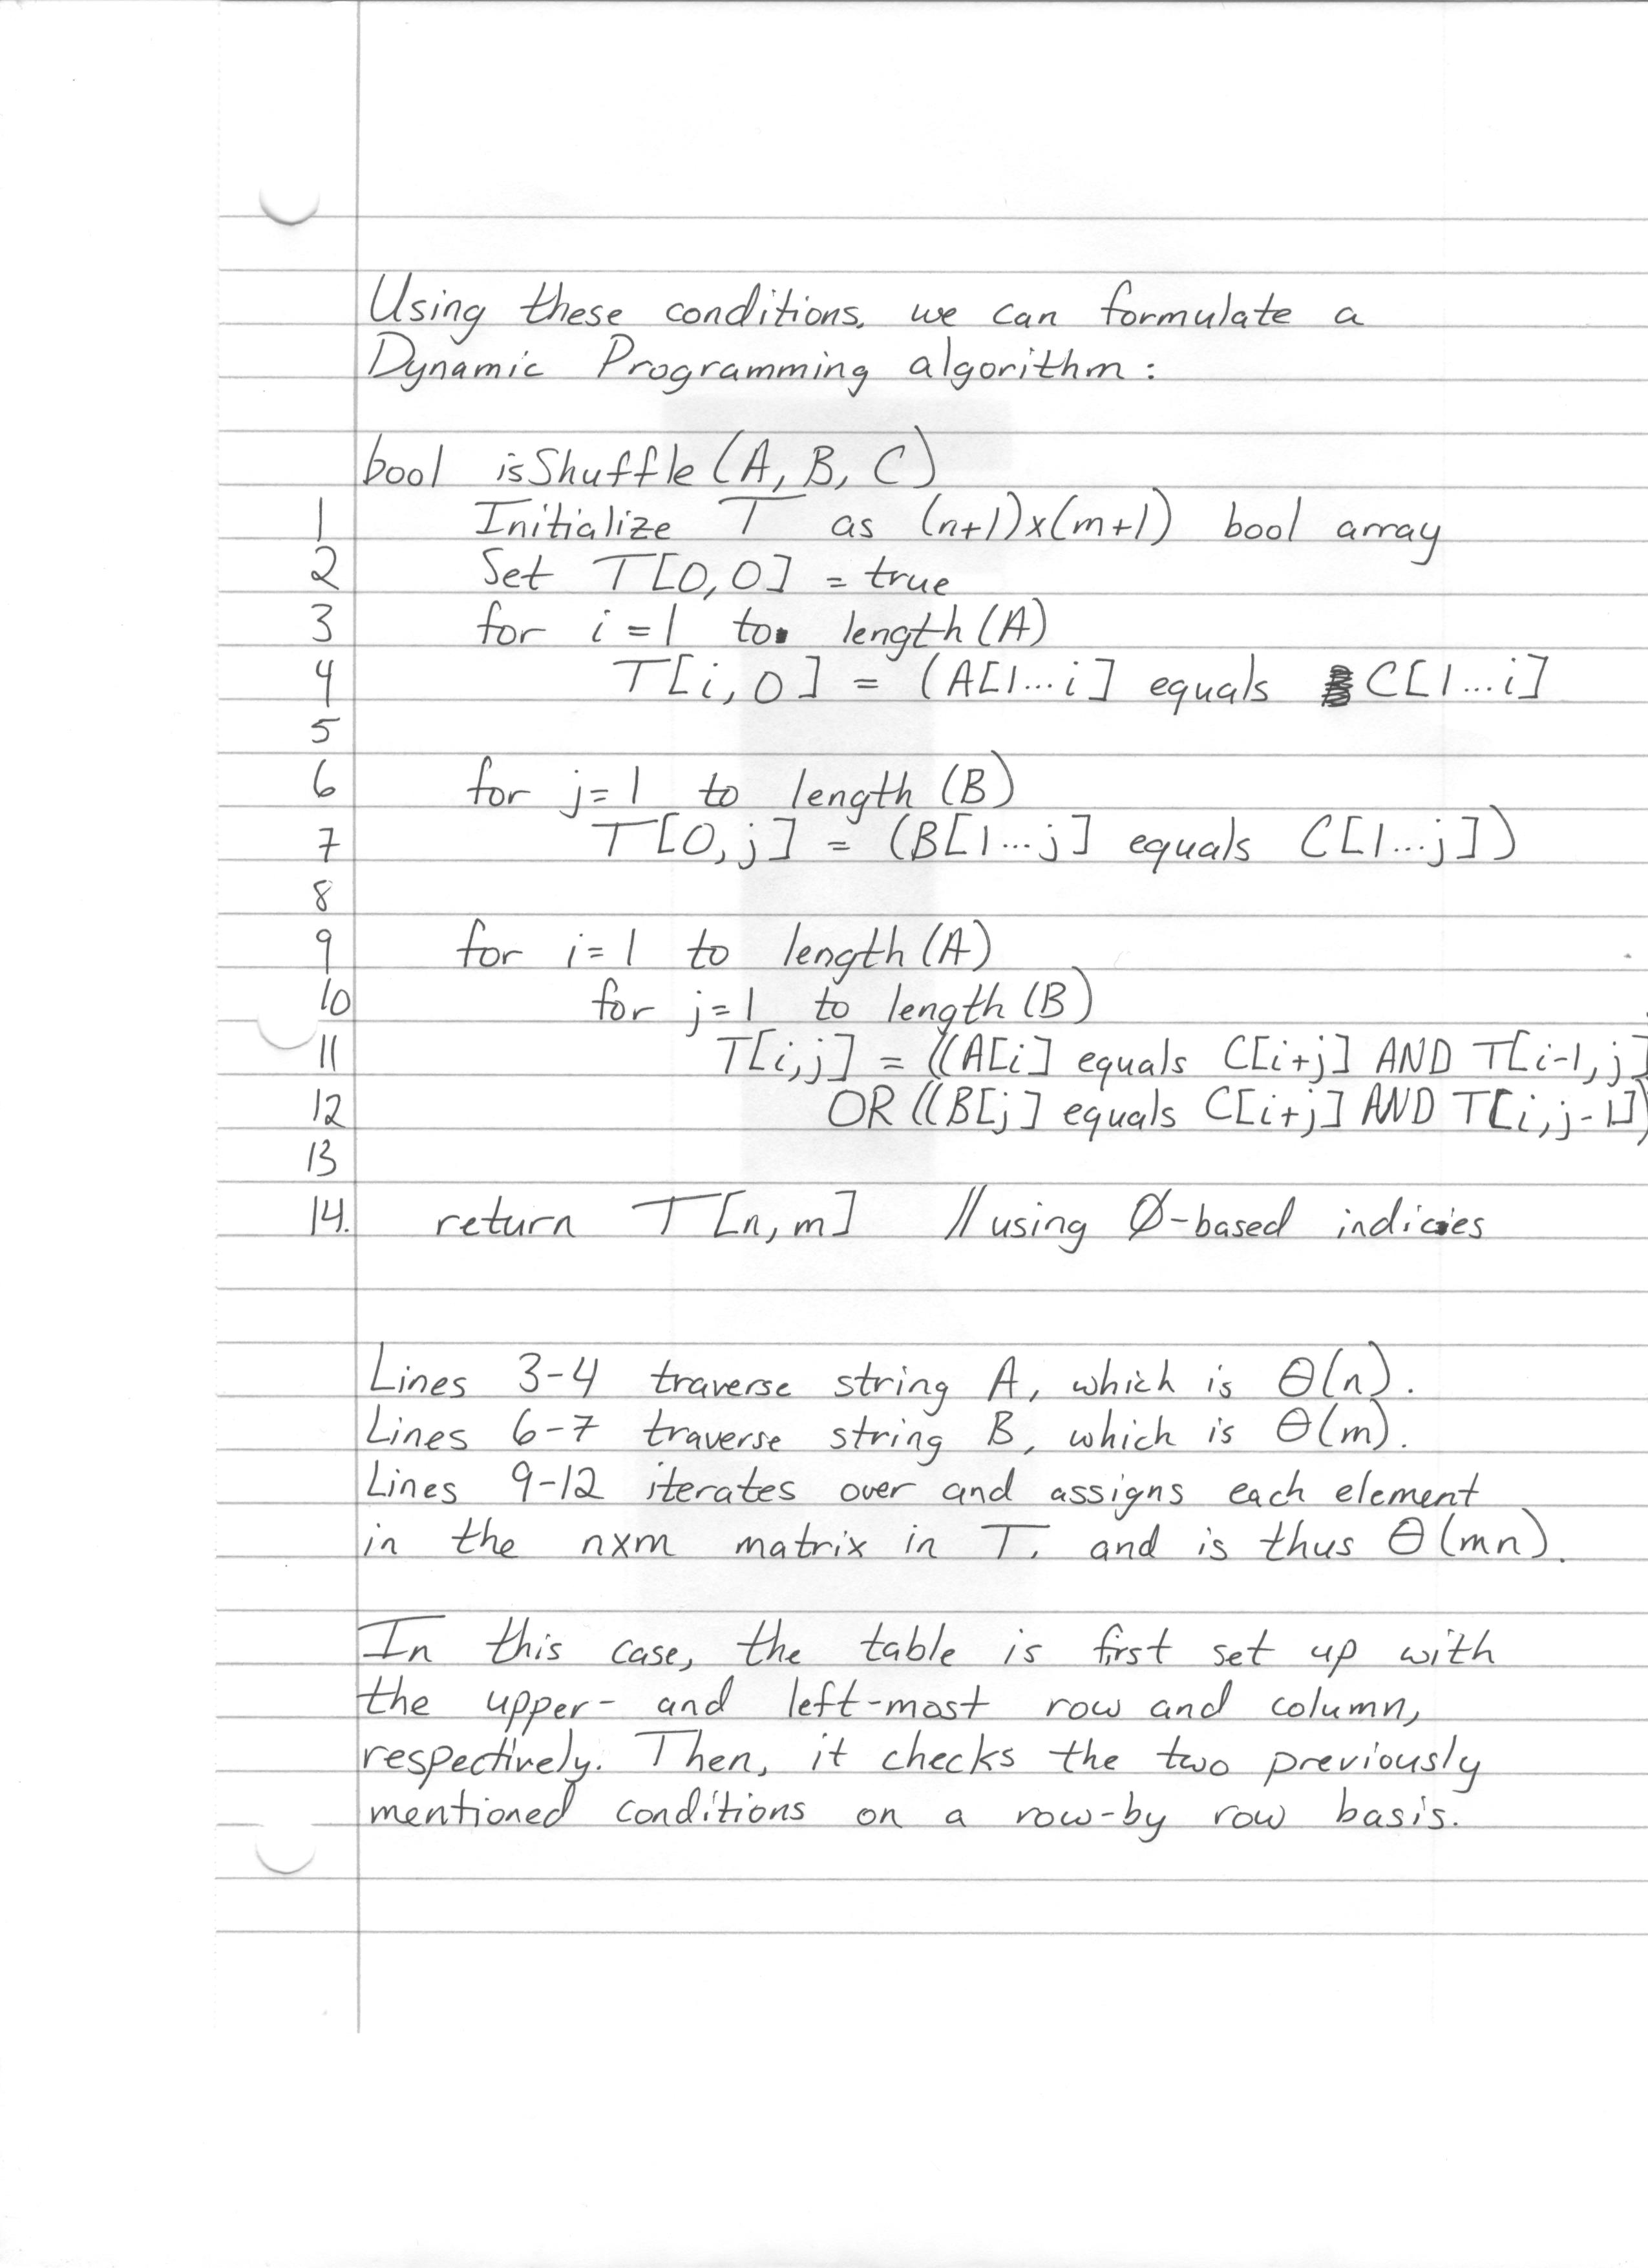 Using these conditions, we can formulate a
Dynamic Programming algorithm:
bool isShuffle(A, B, C)
1 Initialize T as (n+1)x(m+1) bool array
2 Set T[0,0] = true
3 for i=1 to length(A)
4 T[i,0] = (A[1...i] equals C[1...i]
5
6 for j=1 to length(B)
7 T[0,j] = (B[1...j] equals C[1...j])
8
9 for i=1 to length(A)
10 for j=1 to length(B)
11 T[i,j] = ((A[i] equals C[i+j] AND T[i-1,j]
12 OR ((B[j] equals C[i+j] AND T[i,j-1])
13
14. return T[n,m] //using Ø-based indicies
Lines 3-4 traverse string A, which is Θ(n).
Lines 6-7 traverse string B, which is Θ(m).
Lines 9-12 iterates over and assigns each element
in the nxm matrix in T, and is thus Θ(mn).
In this case, the table is first set up with
the upper- and left-most row and column,
respectively. Then, it checks the two previously
mentioned conditions on a row-by row basis.